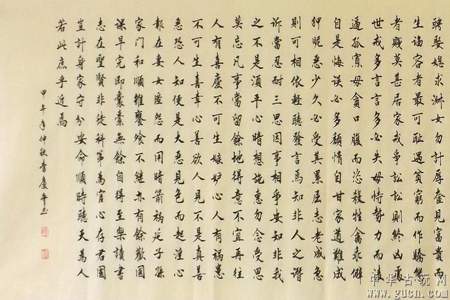 聘娶媳求淑女勿計厚奩見富貴而
生諂容者最可恥遇貧窮而作驕態
者賤莫甚居家戒爭訟訟則終凶處
世戒多言言多必失毋恃勢力而凌
逼孤寡毋貪口腹而恣殺牲禽乖僻
自是悔誤必多頹惰自甘家道難成
狎昵惡少久必受其累屈志老成急
則可相依輕聽發言焉知非人之譖
訴當忍耐三思因事相爭安知非我
之不是須平心暗想施惠勿念受恩
莫忘凡事當留餘地得意不宜再往
人有喜慶不可生嫉妒心人有禍患
不可生喜幸心善欲人見不是真善
惡恐人知便是大惡見色而起淫心
報在妻女匿怨而用暗箭禍延子孫
家門和順雖饔飧不繼亦有餘歡國
課早完即囊橐無餘自得至樂讀書
志在聖賢非徒科第為官心存君國
豈計身家守分安命順時聽天為人
若此庶乎近焉
甲午年仲秋書
中华古玩网
www.gucn.com